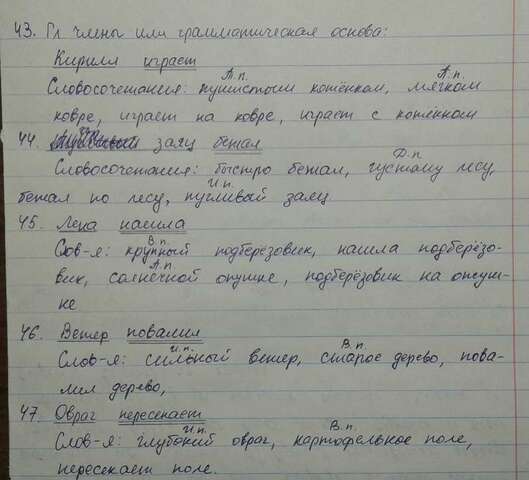 43. Гл члены или грамматическая основа:
Кирилл играет
Т.п. П.п.
Словосочетания: пушистым котёнком, мягком
ковре, играет на ковре, играет с котёнком
44. заяц бежал
Д.п.
Словосочетания: быстро бежал, густому лесу,
И.п.
бежал по лесу, пугливый заяц
45. Лена нашла
В.п.
Слов-я: крупный подберёзовик, нашла подберёзо-
П.п.
вик, солнечной опушке, подберёзовик на опуш-
ке
46. Ветер повалил
И.п. В.п.
Слов-я: сильный ветер, старое дерево, пова-
лил дерево,
47. Овраг пересекает
И.п. В.п.
Слов-я: глубокий овраг, картофельное поле,
пересекает поле.